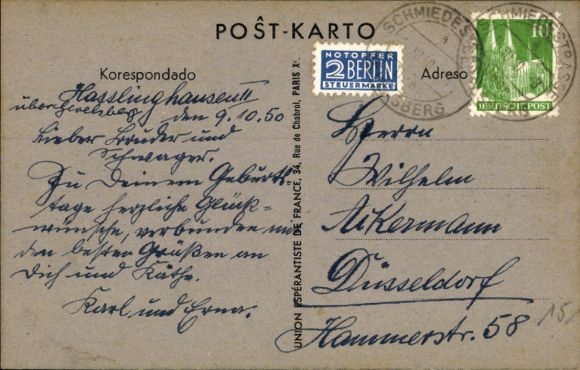 POŜT-KARTO
Korespondado
Adreso
NOTOPFER
2 BERLIN
STEUERMARKE
10
DEUTSCHE POST
UNION ESPÉRANTISTE DE FRANCE, 34, Rue de Chabrol, PARIS Xe.
Hasslinghausen II
über Gevelsberg den 9.10.50
Lieber Bruder und
Schwager.
Zu Deinem Geburts
tage herzliche Glück-
wünsche, verbunden mit
den besten Grüßen an
Dich und Käthe.
Karl und Erna.
Herrn
Wilhelm
Ackermann
Düsseldorf
Hammerstr. 58